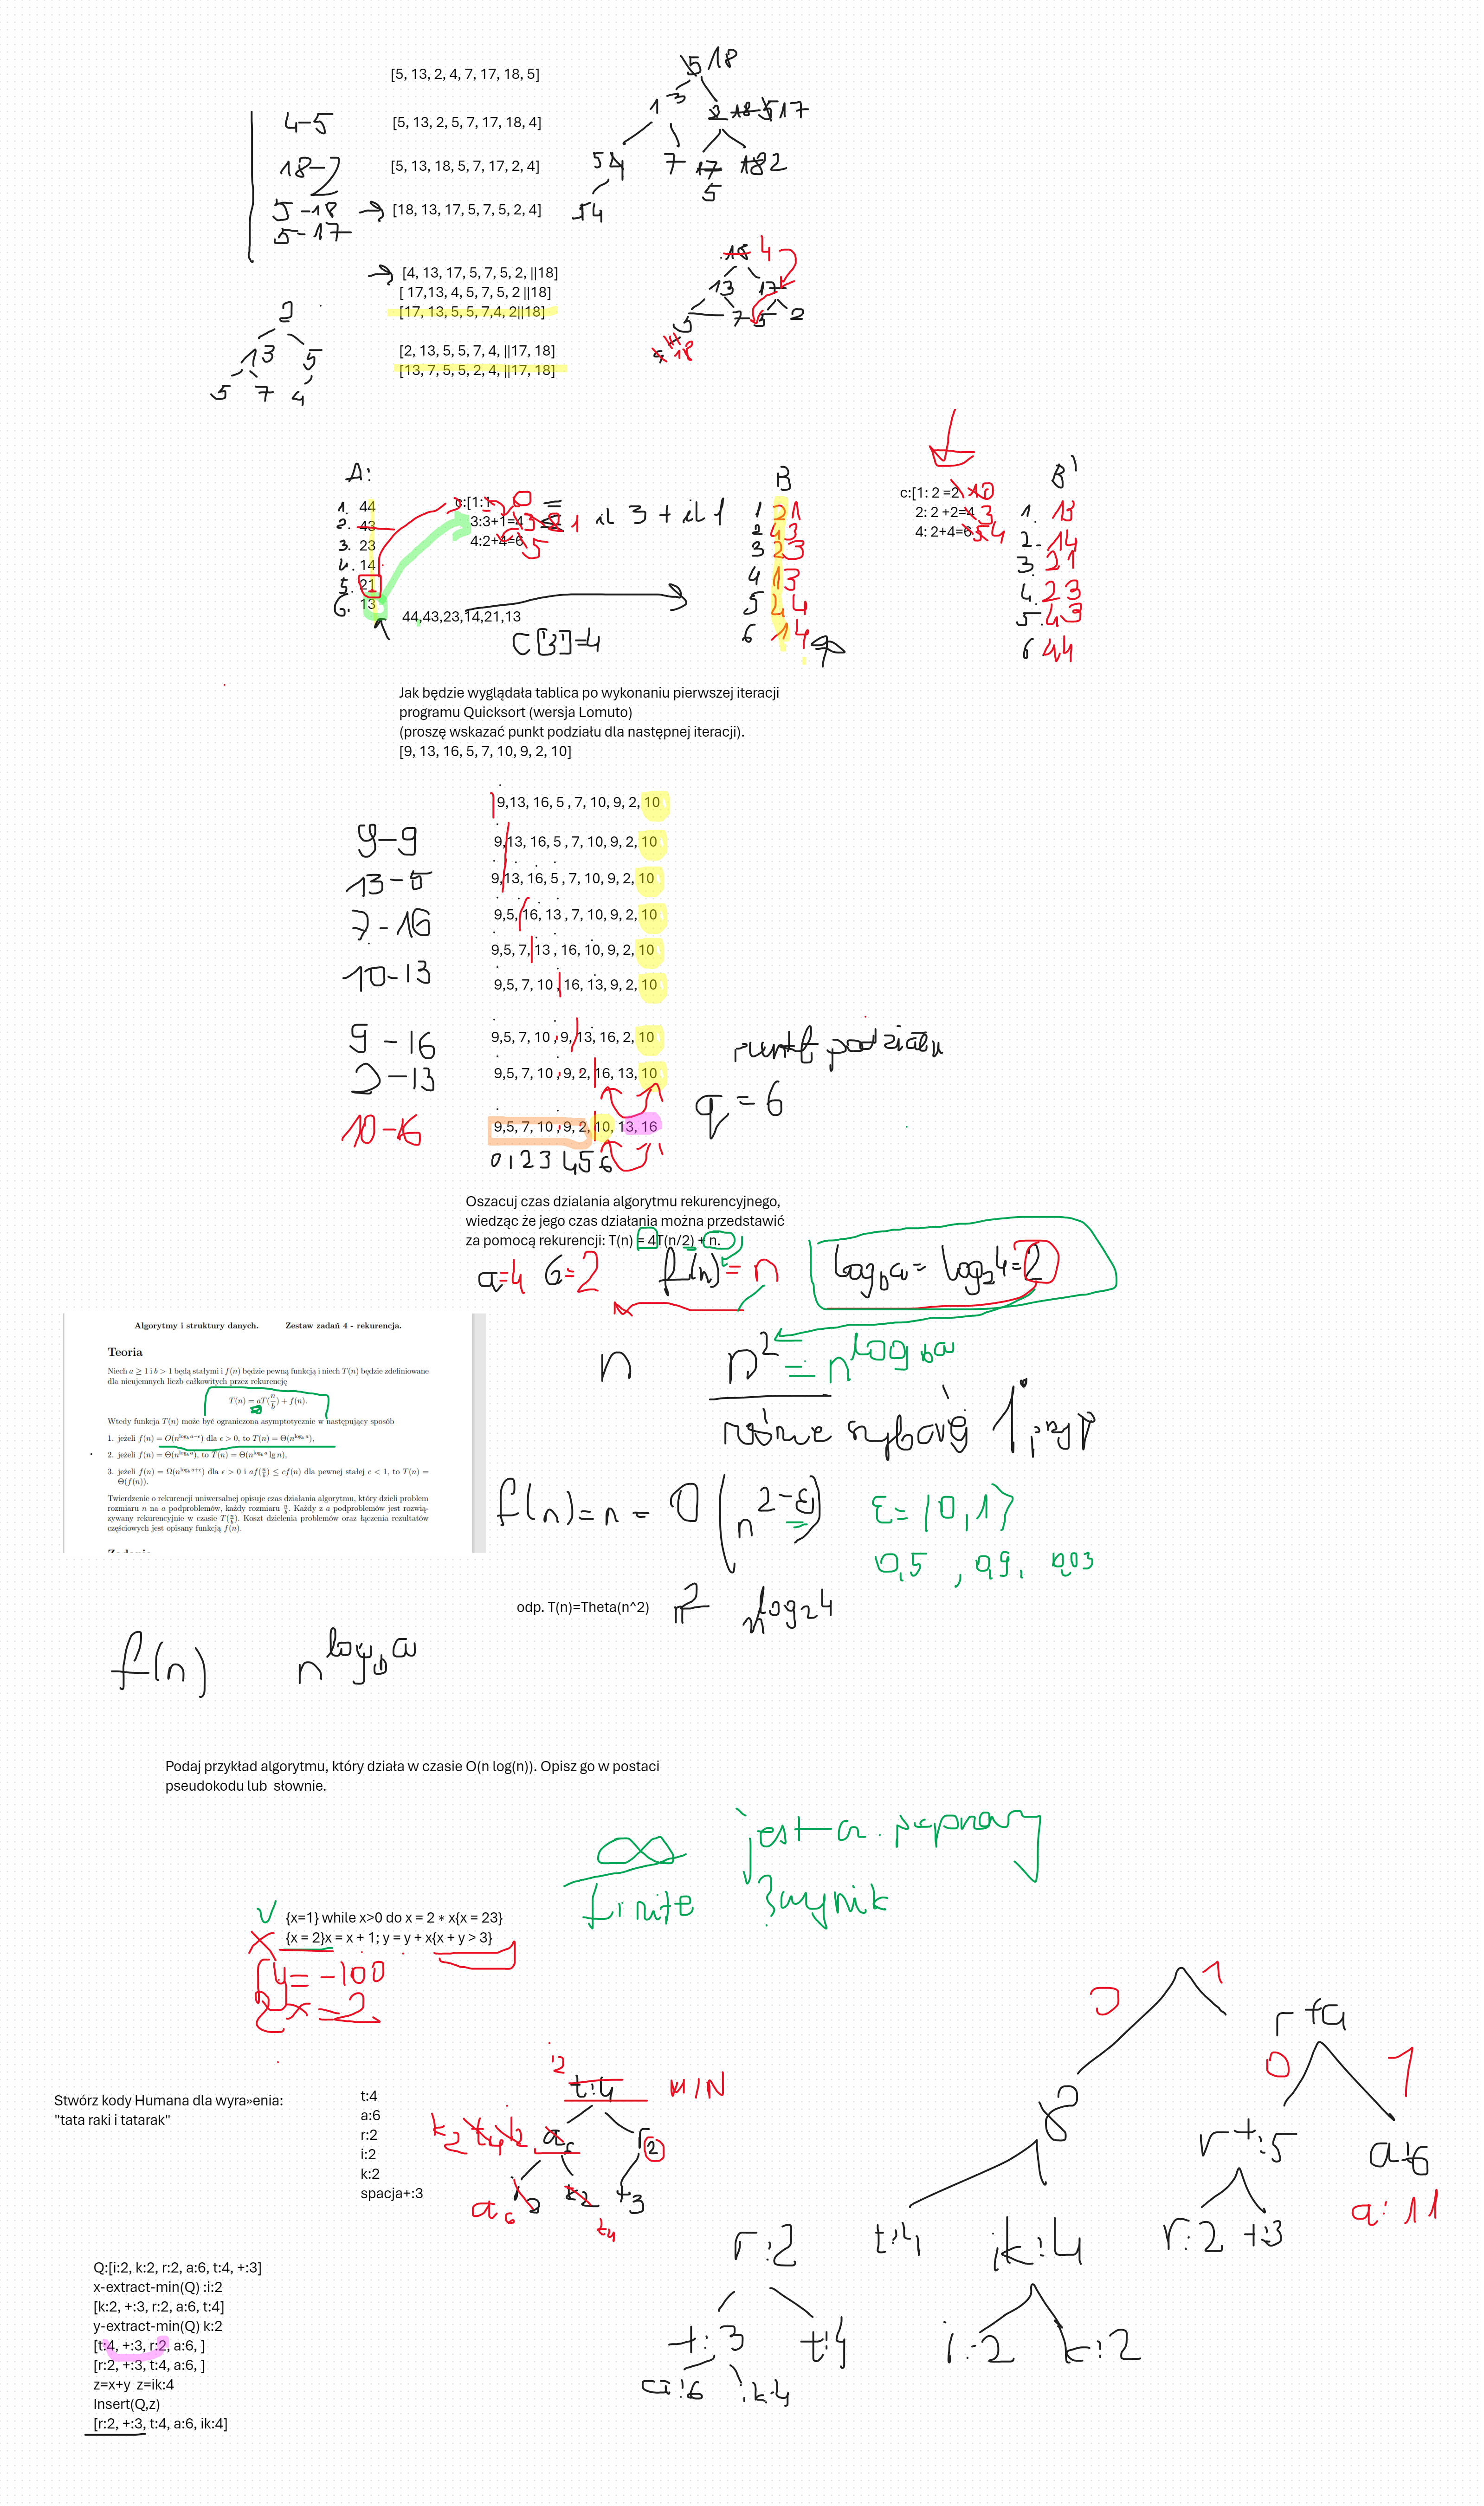 [5, 13, 2, 4, 7, 17, 18, 5]
4-5
[5, 13, 2, 5, 7, 17, 18, 4]
18-2
[5, 13, 18, 5, 7, 17, 2, 4]
5-18
[18, 13, 17, 5, 7, 5, 2, 4]
5-17
5 18
13
2 18 5 17
54 7 17 18 2
5
54
[4, 13, 17, 5, 7, 5, 2, ||18]
[ 17,13, 4, 5, 7, 5, 2 ||18]
[17, 13, 5, 5, 7,4, 2||18]
18 4
13 17
5 7 5 2
18
[2, 13, 5, 5, 7, 4, ||17, 18]
[13, 7, 5, 5, 2, 4, ||17, 18]
2
13 5
5 7 4
A:
1. 44
2. 43
3. 23
4. 14
5. 21
6. 13
c:[1:1
3:3+1=4
4:2+4=6
il 3 + il 1
44,43,23,14,21,13
C[3]=4
B
1 21
2 43
3 23
4 13
5 44
6 14
c:[1: 2 =2
2: 2 +2=4
4: 2+4=6
B'
1. 13
2. 14
3. 21
4. 23
5. 43
6 44
Jak będzie wyglądała tablica po wykonaniu pierwszej iteracji
programu Quicksort (wersja Lomuto)
(proszę wskazać punkt podziału dla następnej iteracji).
[9, 13, 16, 5, 7, 10, 9, 2, 10]
9,13, 16, 5 , 7, 10, 9, 2, 10
9-9
9,13, 16, 5 , 7, 10, 9, 2, 10
13-5
9,13, 16, 5 , 7, 10, 9, 2, 10
7-16
9,5, 16, 13 , 7, 10, 9, 2, 10
9,5, 7, 13 , 16, 10, 9, 2, 10
10-13
9,5, 7, 10 , 16, 13, 9, 2, 10
9-16
9,5, 7, 10 , 9, 13, 16, 2, 10
2-13
9,5, 7, 10 , 9, 2, 16, 13, 10
10-16
9,5, 7, 10 , 9, 2, 10, 13, 16
0 1 2 3 4 5 6
punkt podziału
q = 6
Oszacuj czas dzialania algorytmu rekurencyjnego,
wiedząc że jego czas działania można przedstawić
za pomocą rekurencji: T(n) = 4T(n/2) + n.
a=4 b=2 f(n) = n
log_b a = log_2 4 = 2
n n^2 = n^log_b a
rośnie szybciej 1 przyp
f(n) = n = O(n^2-ε)
ε = (0,1⟩
0,5 , 0,9, 0,03
Algorytmy i struktury danych. Zestaw zadań 4 - rekurencja.
Teoria
Niech a ≥ 1 i b > 1 będą stałymi i f(n) będzie pewną funkcją i niech T(n) będzie zdefiniowane
dla nieujemnych liczb całkowitych przez rekurencję
T(n) = aT(n/b) + f(n).
Wtedy funkcja T(n) może być ograniczona asymptotycznie w następujący sposób
1. jeżeli f(n) = O(n^log_b a−ε) dla ϵ > 0, to T(n) = Θ(n^log_b a),
2. jeżeli f(n) = Θ(n^log_b a), to T(n) = Θ(n^log_b a lg n),
3. jeżeli f(n) = Ω(n^log_b a+ε) dla ϵ > 0 i af(n/b) ≤ cf(n) dla pewnej stałej c < 1, to T(n) =
Θ(f(n)).
Twierdzenie o rekurencji uniwersalnej opisuje czas działania algorytmu, który dzieli problem
rozmiaru n na a podproblemów, każdy rozmiaru n/b. Każdy z a podproblemów jest rozwią-
zywany rekurencyjnie w czasie T(n/b). Koszt dzielenia problemów oraz łączenia rezultatów
częściowych jest opisany funkcją f(n).
odp. T(n)=Theta(n^2)
n^2 n^log_2 4
f(n) n^log_b a
Podaj przykład algorytmu, który działa w czasie O(n log(n)). Opisz go w postaci
pseudokodu lub słownie.
∞
finite
jest cz. poprawny
wynik
{x=1} while x>0 do x = 2 * x{x = 23}
{x = 2}x = x + 1; y = y + x{x + y > 3}
y = -100
x = 2
Stwórz kody Humana dla wyra»enia:
"tata raki i tatarak"
t:4
a:6
r:2
i:2
k:2
spacja+:3
i2
t:4
MIN
k2 t4 i2
a6
r2
a6
i2 k2 +3
t4
0 1
8
r+a
0 1
r+:5
a:6
a: 11
t:4
ik:4
r:2 +:3
i:2 k:2
r:2
+:3 t:4
a:6 ik:4
Q:[i:2, k:2, r:2, a:6, t:4, +:3]
x-extract-min(Q) :i:2
[k:2, +:3, r:2, a:6, t:4]
y-extract-min(Q) k:2
[t:4, +:3, r:2, a:6, ]
[r:2, +:3, t:4, a:6, ]
z=x+y z=ik:4
Insert(Q,z)
[r:2, +:3, t:4, a:6, ik:4]